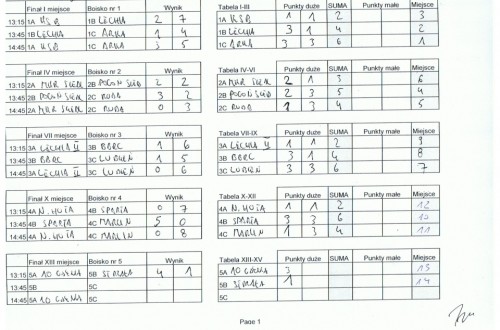 Finał I miejsce Boisko nr 1 Wynik Tabela I-III Punkty duże SUMA Punkty małe Miejsce
13:15 1A KSB 1B LECHIA 2 7 1A KSB 1 1 2 3
13:45 1B LECHIA 1C ARKA 1 4 1B LECHIA 3 1 4 2
14:45 1A KSB 1C ARKA 3 5 1C ARKA 3 3 6 1
Finał IV miejsce Boisko nr 2 Wynik Tabela IV-VI Punkty duże SUMA Punkty małe Miejsce
13:15 2A 2B 2 2 2A 2 1 3 6
13:45 2B 2C RUDA 3 2 2B 2 3 5 4
14:45 2A 2C RUDA 0 3 2C RUDA 1 3 4 5
Finał VII miejsce Boisko nr 3 Wynik Tabela VII-IX Punkty duże SUMA Punkty małe Miejsce
13:15 3A LECHIA II 3B BBRC 1 6 3A LECHIA II 1 1 2 9
13:45 3B BBRC 3C 1 5 3B BBRC 3 1 4 8
14:45 3A LECHIA II 3C 0 6 3C 3 3 6 7
Finał X miejsce Boisko nr 4 Wynik Tabela X-XII Punkty duże SUMA Punkty małe Miejsce
13:15 4A N. HUTA 4B SPARTA 0 7 4A N. HUTA 1 1 2 12
13:45 4B SPARTA 4C 5 0 4B SPARTA 3 3 6 10
14:45 4A N. HUTA 4C 0 8 4C 1 3 4 11
Finał XIII miejsce Boisko nr 5 Wynik Tabela XIII-XV Punkty duże SUMA Punkty małe Miejsce
13:15 5A 5B 4 1 5A 3
13:45 5B 5C 5B 1 14
14:45 5A 5C 5C
Page 1